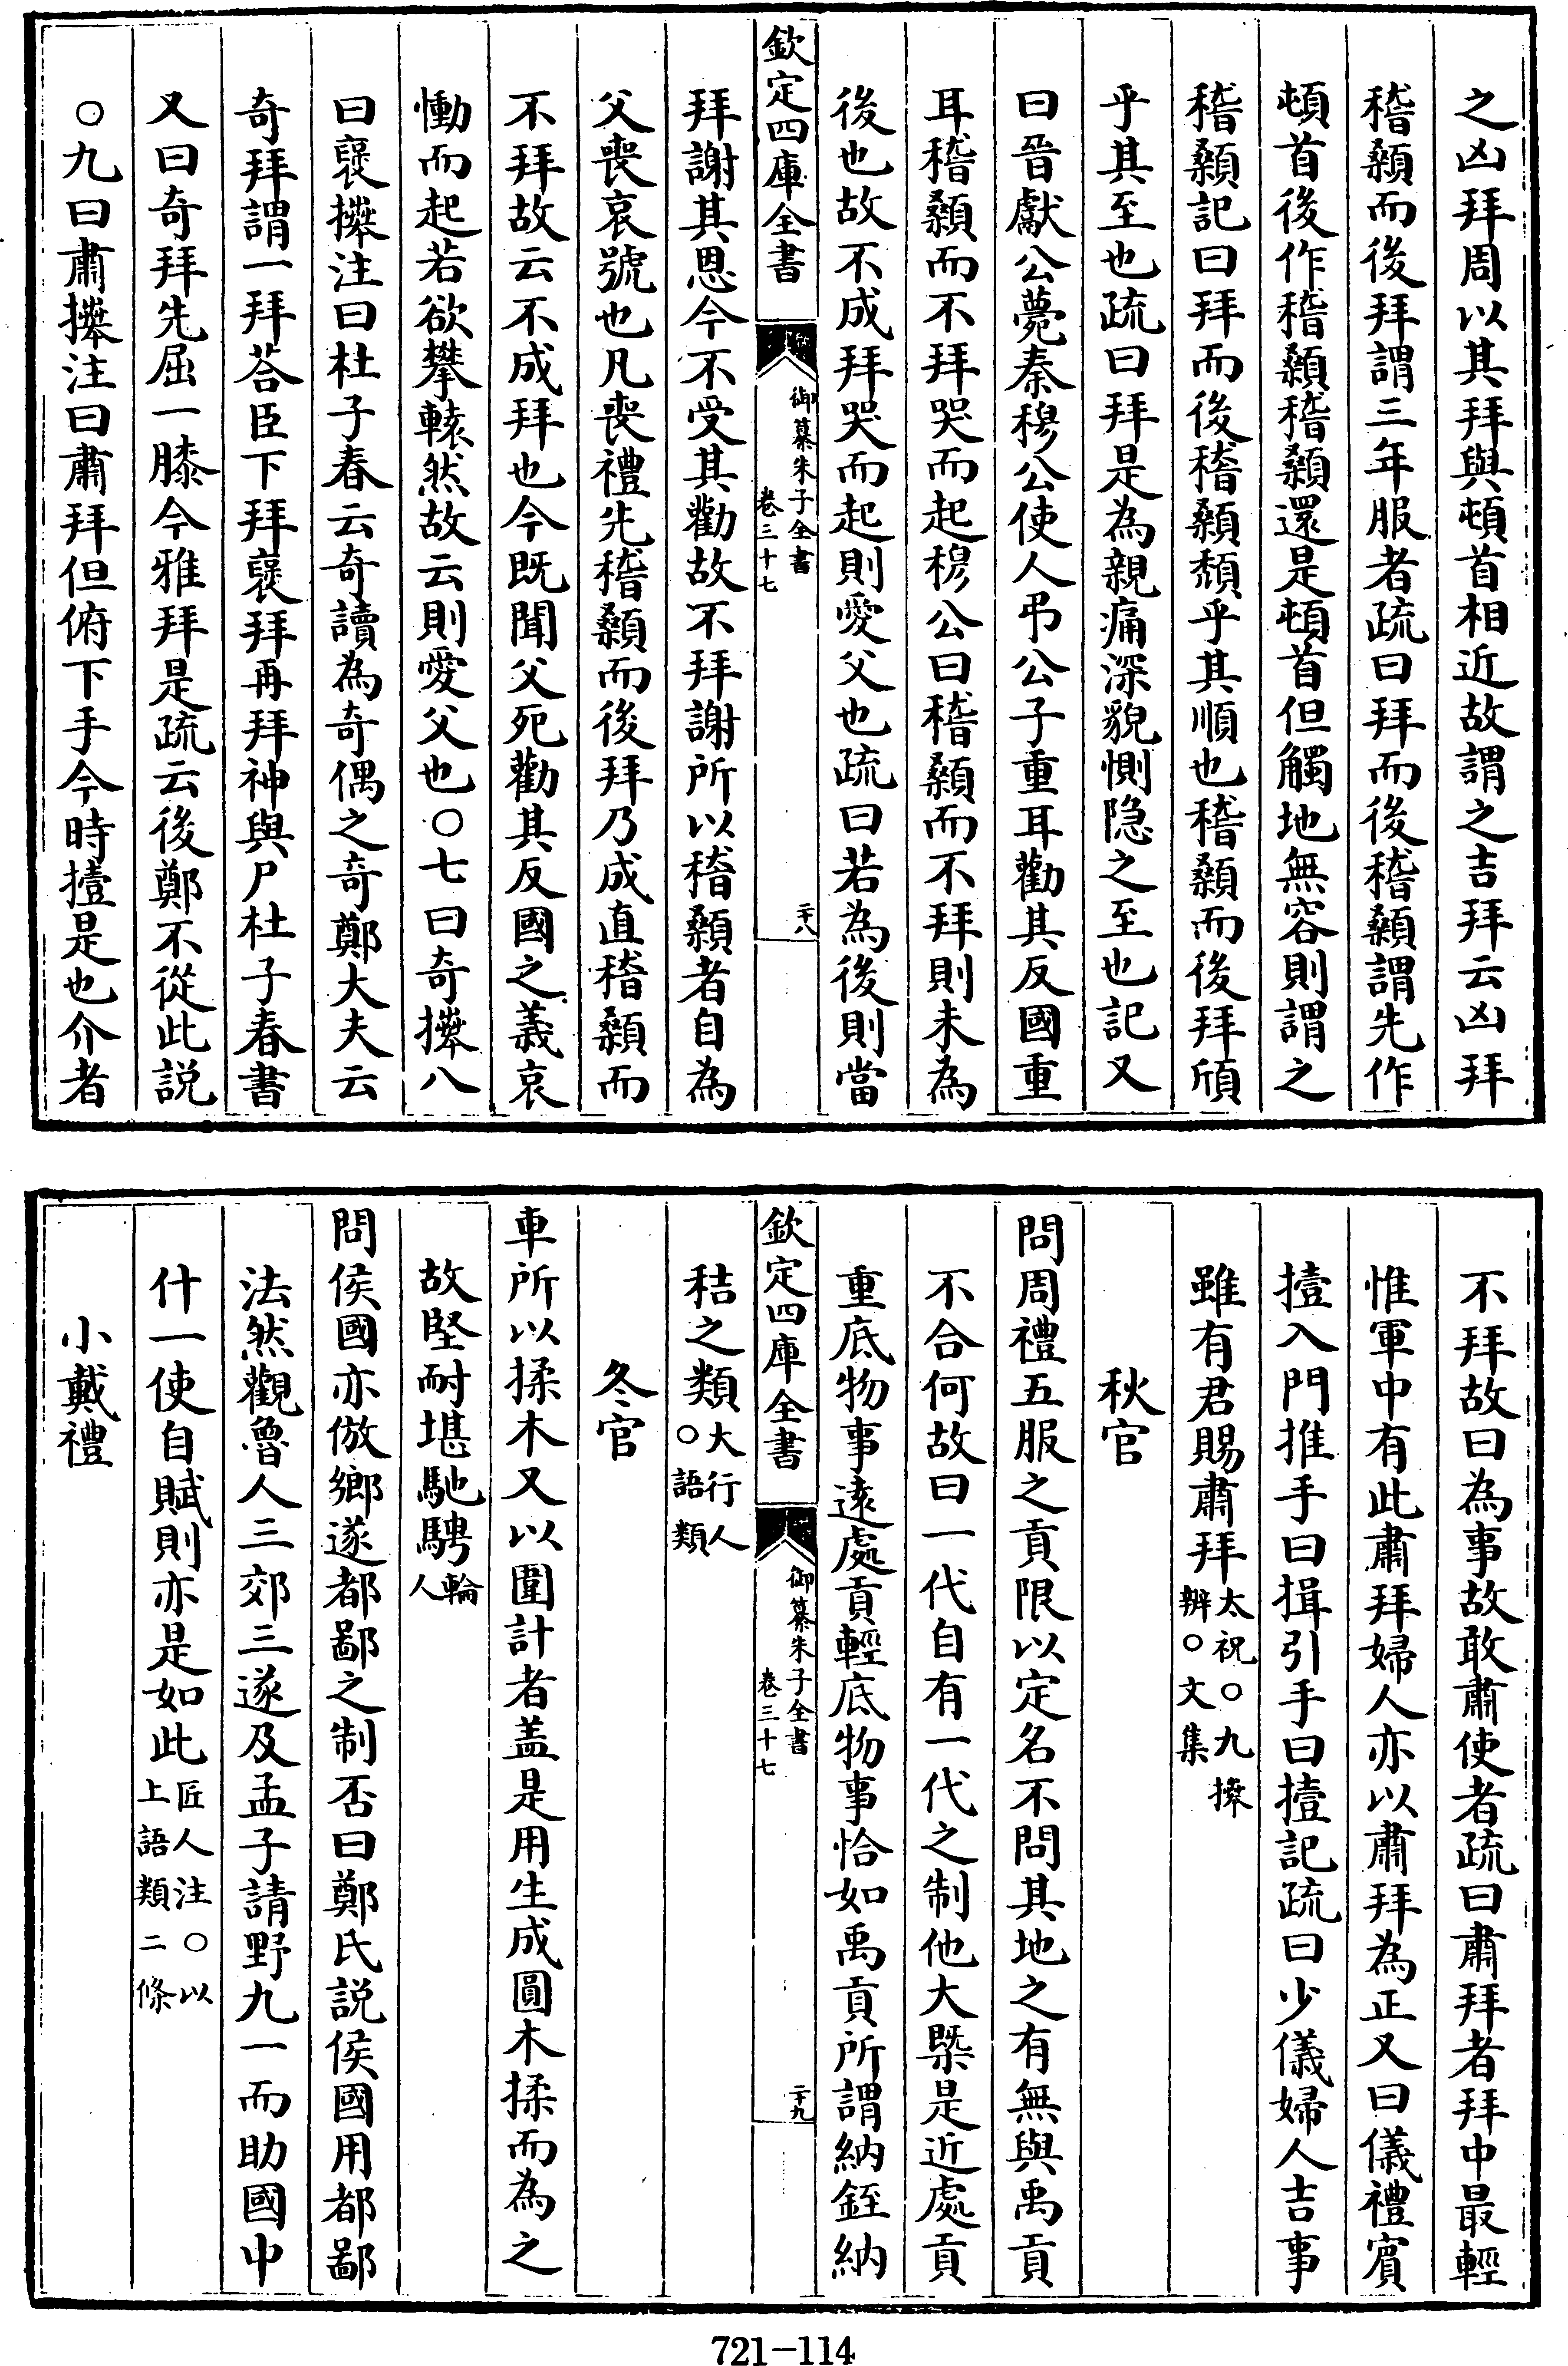 之凶拜周以其拜與頓首相近故謂之吉拜云凶拜
稽顙而後拜謂三年服者疏曰拜而後稽顙謂先作
頓首後作稽顙稽顙還是頓首但觸地無容則謂之
稽顙記曰拜而後稽顙頽乎其順也稽顙而後拜頎
乎其至也疏曰拜是為親痛深貌惻隐之至也記又
曰晉獻公薨秦穆公使人弔公子重耳勸其反國重
耳稽顙而不拜哭而起穆公曰稽顙而不拜則未為
後也故不成拜哭而起則愛父也疏曰若為後則當
欽定四庫全書
御纂朱子全書
卷三十七
二十八
拜謝其恩今不受其勸故不拜謝所以稽顙者自為
父喪哀號也凡喪禮先稽顙而後拜乃成直稽顙而
不拜故云不成拜也今既聞父死勸其反國之義哀
慟而起若欲攀轅然故云則愛父也○七曰奇𢷎八
曰襃𢷎注曰杜子春云奇讀為奇偶之奇鄭大夫云
奇拜謂一拜荅臣下拜襃拜再拜神與尸杜子春書
又曰奇拜先屈一膝今雅拜是疏云後鄭不從此説
○九曰肅𢷎注曰肅拜但俯下手今時撎是也介者
不拜故曰為事故敢肅使者疏曰肅拜者拜中最輕
惟軍中有此肅拜婦人亦以肅拜為正又曰儀禮賓
撎入門推手曰揖引手曰撎記疏曰少儀婦人吉事
雖有君賜肅拜太祝○九𢷎辨○文集
秋官
問周禮五服之貢限以定名不問其地之有無與禹貢
不合何故曰一代自有一代之制他大槩是近處貢
重底物事遠處貢輕底物事恰如禹貢所謂納銍納
欽定四庫全書
御纂朱子全書
卷三十七
二十九
秸之類大行人○語類
冬官
車所以揉木又以圍計者盖是用生成圓木揉而為之
故堅耐堪馳騁輪人
問侯國亦倣鄉遂都鄙之制否曰鄭氏説侯國用都鄙
法然觀魯人三郊三遂及孟子請野九一而助國中
什一使自賦則亦是如此匠人注○以上語類二條
小戴禮
721-114